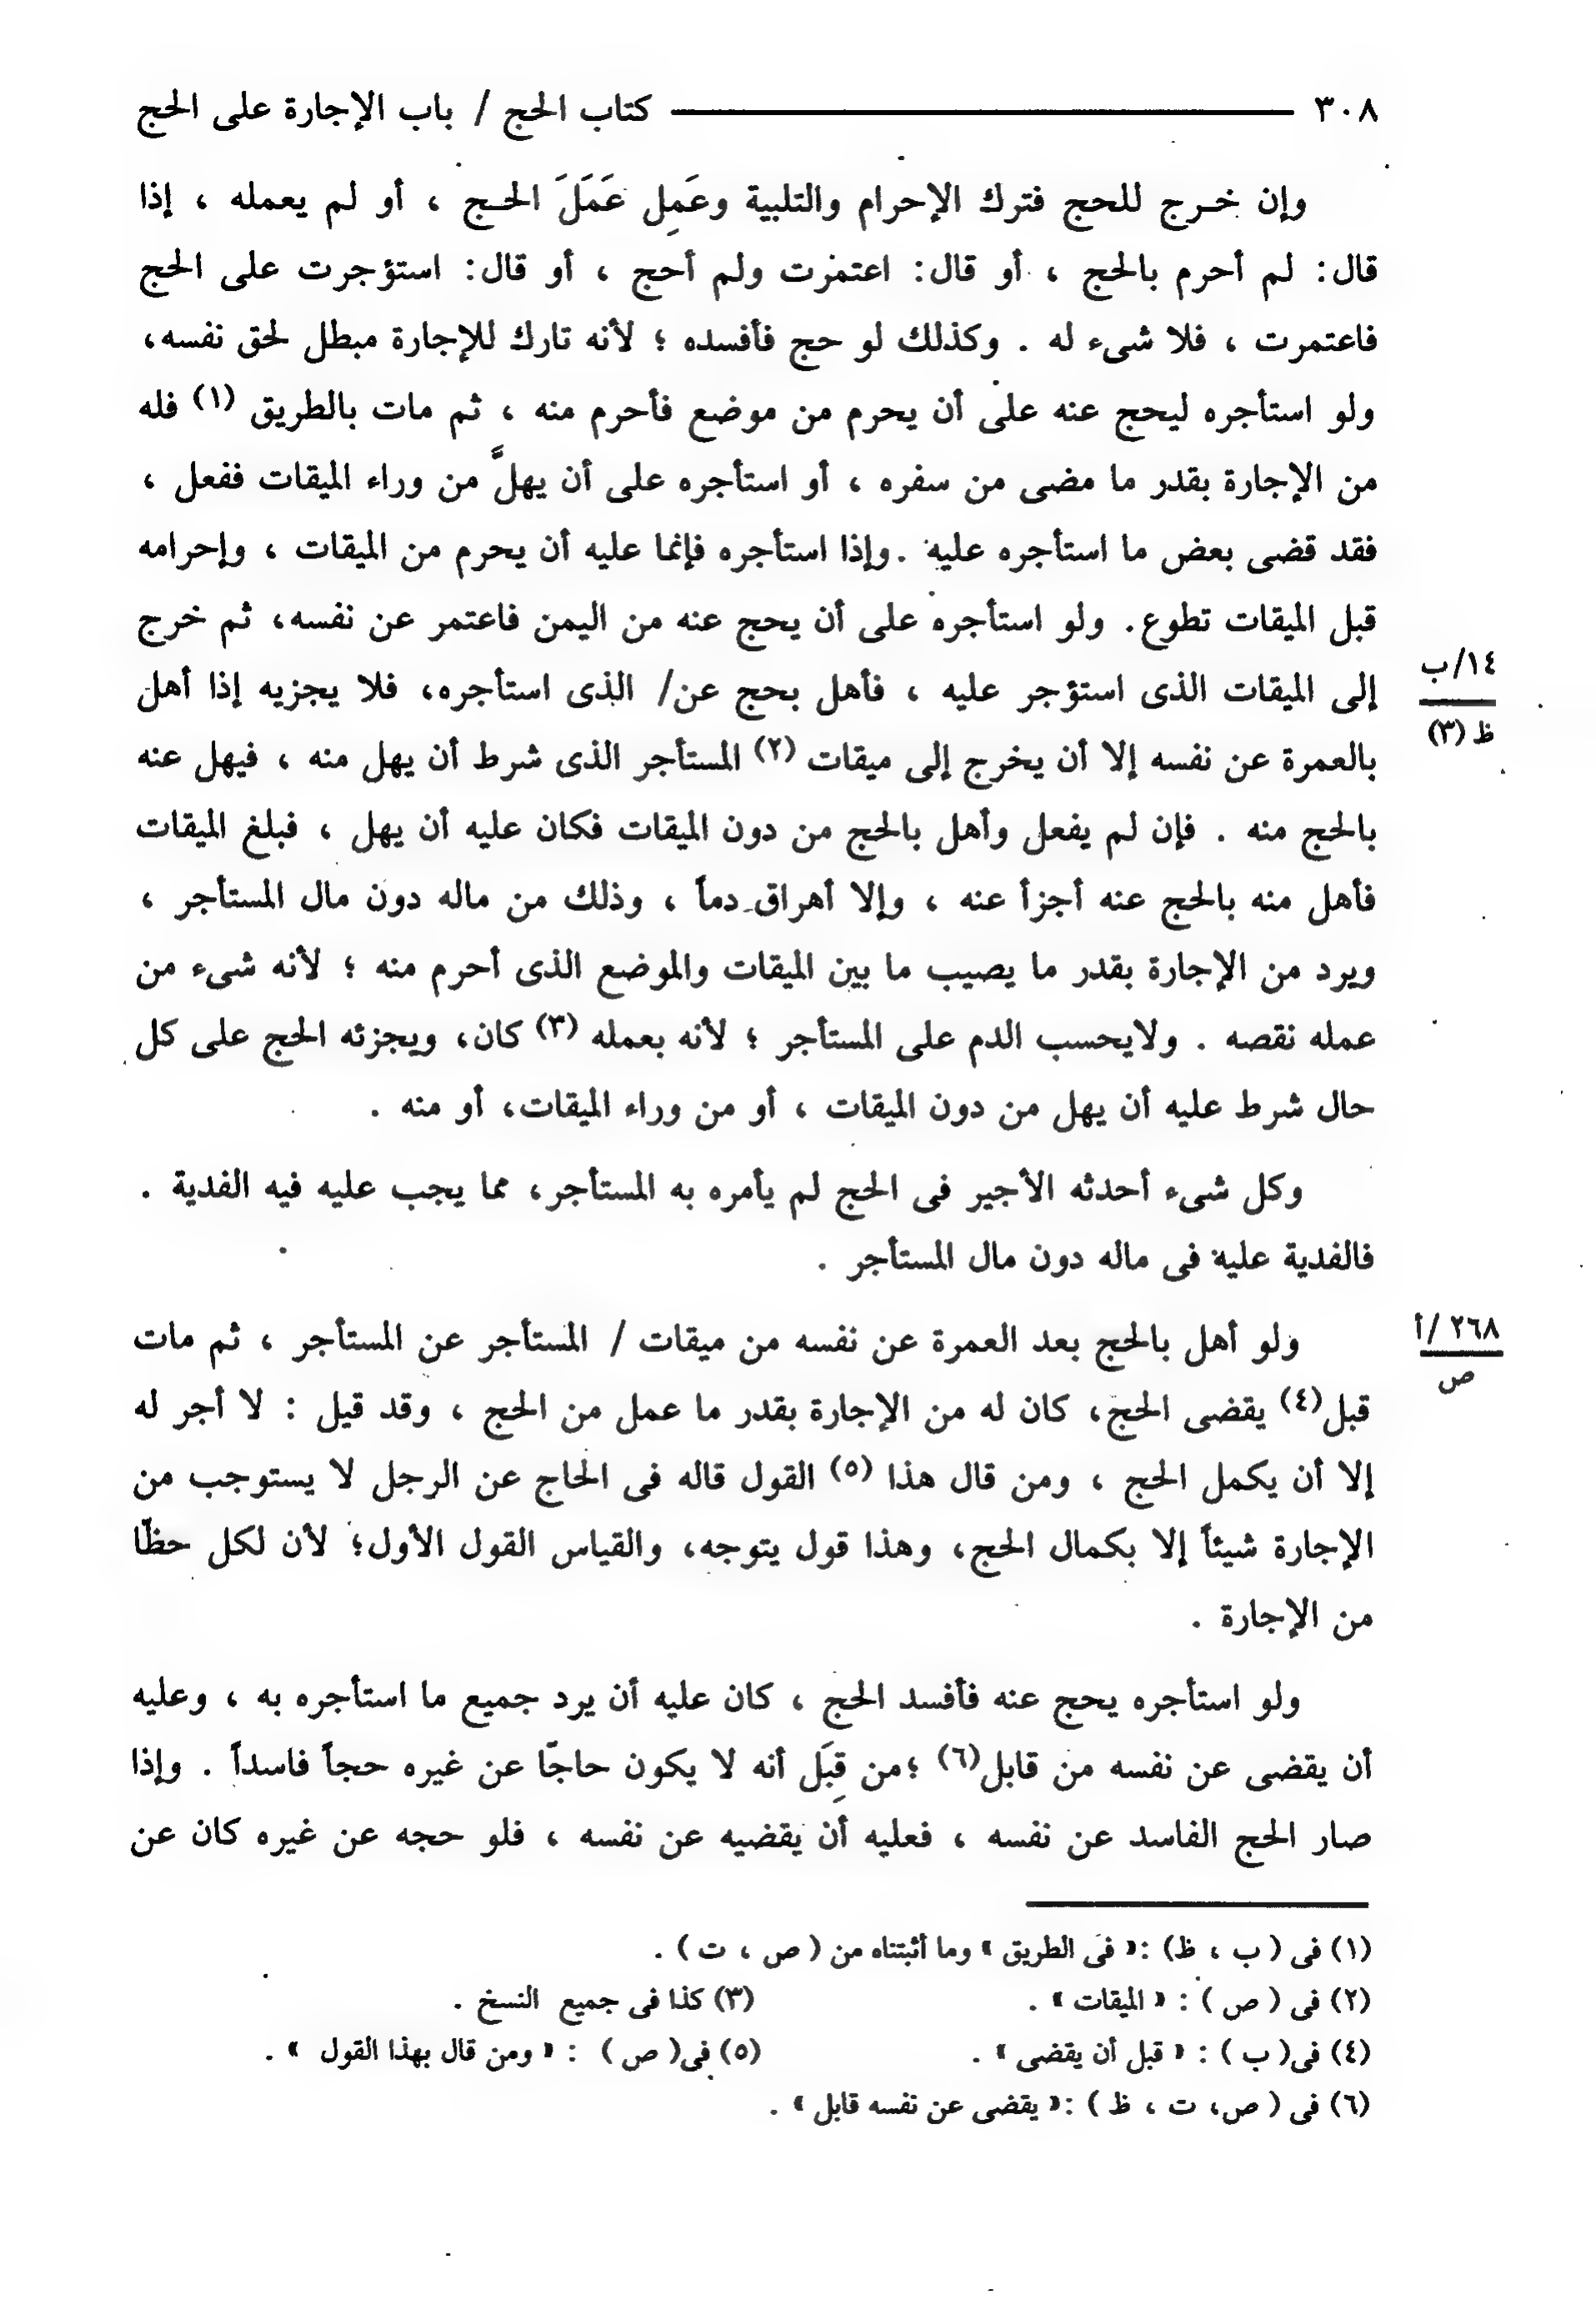 ٣٠٨ كتاب الحج / باب الإجارة على الحج
وإن خرج للحج فترك الإحرام والتلبية وعَمِل عَمَلَ الحج ، أو لم يعمله ، إذا
قال: لم أحرم بالحج ، أو قال: اعتمرت ولم أحج ، أو قال: استؤجرت على الحج
فاعتمرت ، فلا شىء له . وكذلك لو حج فأفسده ؛ لأنه تارك للإجارة مبطل لحق نفسه،
ولو استأجره ليحج عنه على أن يحرم من موضع فأحرم منه ، ثم مات بالطريق (١) فله
من الإجارة بقدر ما مضى من سفره ، أو استأجره على أن يهلَّ من وراء الميقات ففعل ،
فقد قضى بعض ما استأجره عليه .وإذا استأجره فإنما عليه أن يحرم من الميقات ، وإحرامه
قبل الميقات تطوع. ولو استأجره على أن يحج عنه من اليمن فاعتمر عن نفسه، ثم خرج
١٤/ب
إلى الميقات الذى استؤجر عليه ، فأهل بحج عن/ الذى استأجره، فلا يجزيه إذا أهل
ظ (٣)
بالعمرة عن نفسه إلا أن يخرج إلى ميقات (٢) المستأجر الذى شرط أن يهل منه ، فيهل عنه
بالحج منه . فإن لم يفعل وأهل بالحج من دون الميقات فكان عليه أن يهل ، فبلغ الميقات
فأهل منه بالحج عنه أجزأ عنه ، وإلا أهراق دماً ، وذلك من ماله دون مال المستأجر ،
ويرد من الإجارة بقدر ما يصيب ما بين الميقات والموضع الذى أحرم منه ؛ لأنه شىء من
عمله نقصه . ولايحسب الدم على المستأجر ؛ لأنه بعمله (٣) كان، ويجزئه الحج على كل
حال شرط عليه أن يهل من دون الميقات ، أو من وراء الميقات، أو منه .
وكل شىء أحدثه الأجير فى الحج لم يأمره به المستأجر، مما يجب عليه فيه الفدية .
فالفدية عليه فى ماله دون مال المستأجر .
ولو أهل بالحج بعد العمرة عن نفسه من ميقات / المستأجر عن المستأجر ، ثم مات
٢٦٨ /أ
ص
قبل(٤) يقضى الحج، كان له من الإجارة بقدر ما عمل من الحج ، وقد قيل : لا أجر له
إلا أن يكمل الحج ، ومن قال هذا (٥) القول قاله فى الحاج عن الرجل لا يستوجب من
الإجارة شيئاً إلا بكمال الحج، وهذا قول يتوجه، والقياس القول الأول؛ لأن لكل حظّا
من الإجارة .
ولو استأجره يحج عنه فأفسد الحج ، كان عليه أن يرد جميع ما استأجره به ، وعليه
أن يقضى عن نفسه من قابل(٦) ؛من قِبَل أنه لا يكون حاجّا عن غيره حجاً فاسداً . وإذا
صار الحج الفاسد عن نفسه ، فعليه أن يقضيه عن نفسه ، فلو حجه عن غيره كان عن
(١) فى ( ب ، ظ) :« فى الطريق » وما أثبتناه من ( ص ، ت ) .
(٢) فى ( ص ) : « الميقات » . (٣) كذا فى جميع النسخ .
(٤) فى( ب ) : « قبل أن يقضى » . (٥) فى( ص ) : « ومن قال بهذا القول » .
(٦) فى ( ص، ت ، ظ ) :« يقضى عن نفسه قابل » .